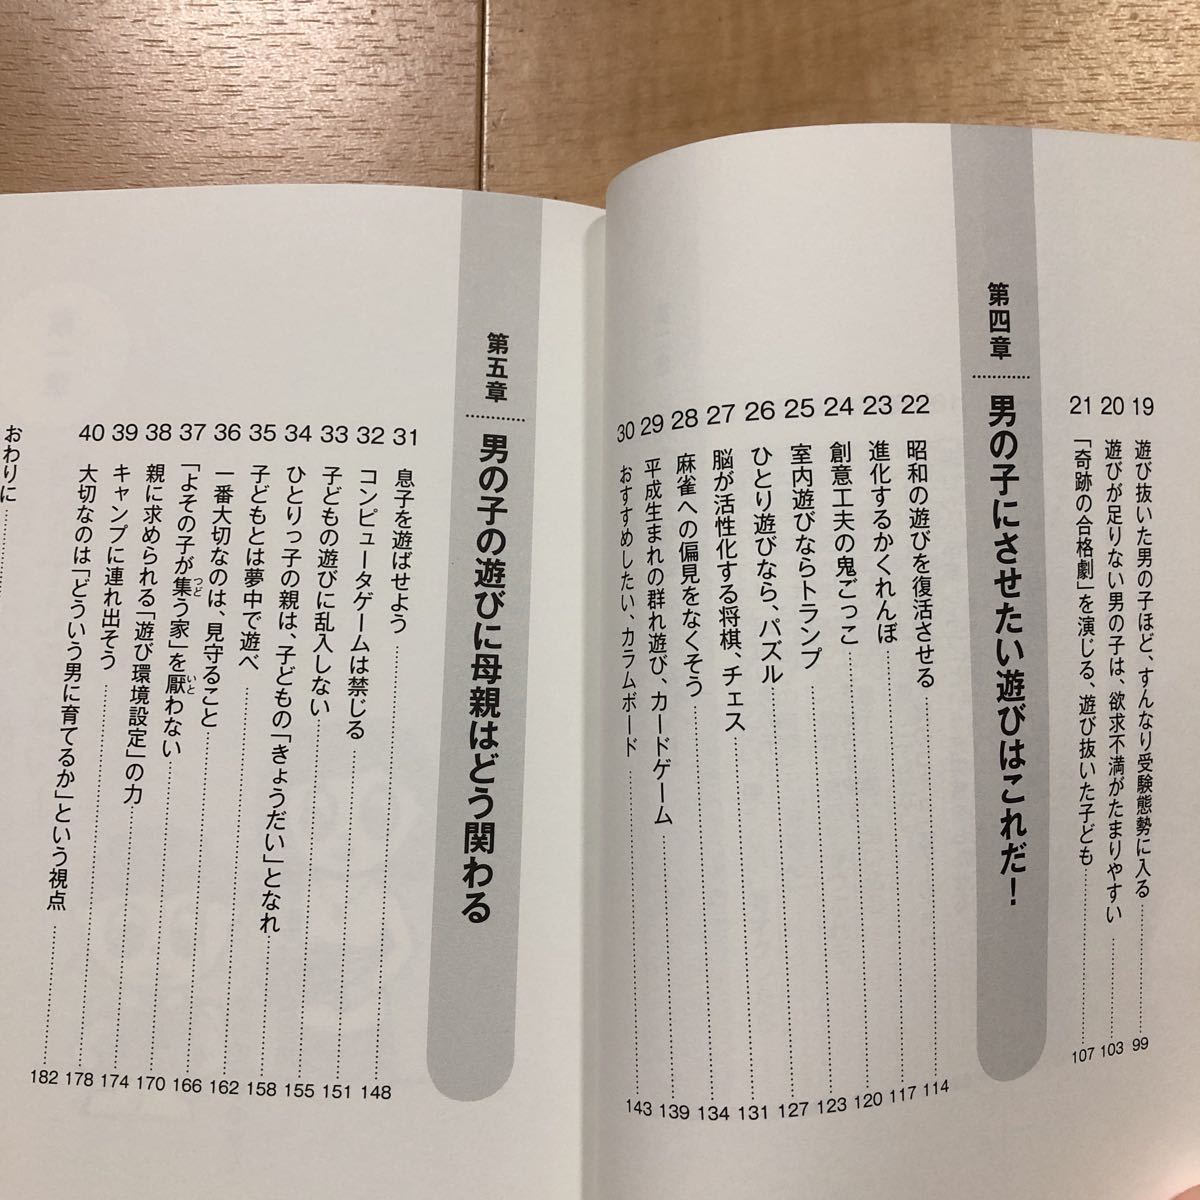 19 遊び抜いた男の子ほど、すんなり受験態勢に入る 99
20 遊びが足りない男の子は、欲求不満がたまりやすい 103
21 「奇跡の合格劇」を演じる、遊び抜いた子ども 107
第四章 男の子にさせたい遊びはこれだ！
22 昭和の遊びを復活させる 114
23 進化するかくれんぼ 117
24 創意工夫の鬼ごっこ 120
25 室内遊びならトランプ 123
26 ひとり遊びなら、パズル 127
27 脳が活性化する将棋、チェス 131
28 麻雀への偏見をなくそう 134
29 平成生まれの群れ遊び、カードゲーム 139
30 おすすめしたい、カラムボード 143
第五章 男の子の遊びに母親はどう関わる
31 息子を遊ばせよう 148
32 コンピュータゲームは禁じる 151
33 子どもの遊びに乱入しない 155
34 ひとりっ子の親は、子どもの「きょうだい」となれ 158
35 子どもとは夢中で遊べ 162
36 一番大切なのは、見守ること 166
37 「よその子が集う家」を厭わない 170
つど
いと
38 親に求められる「遊び環境設定」の力 174
39 キャンプに連れ出そう 178
40 大切なのは「どういう男に育てるか」という視点 182
おわりに